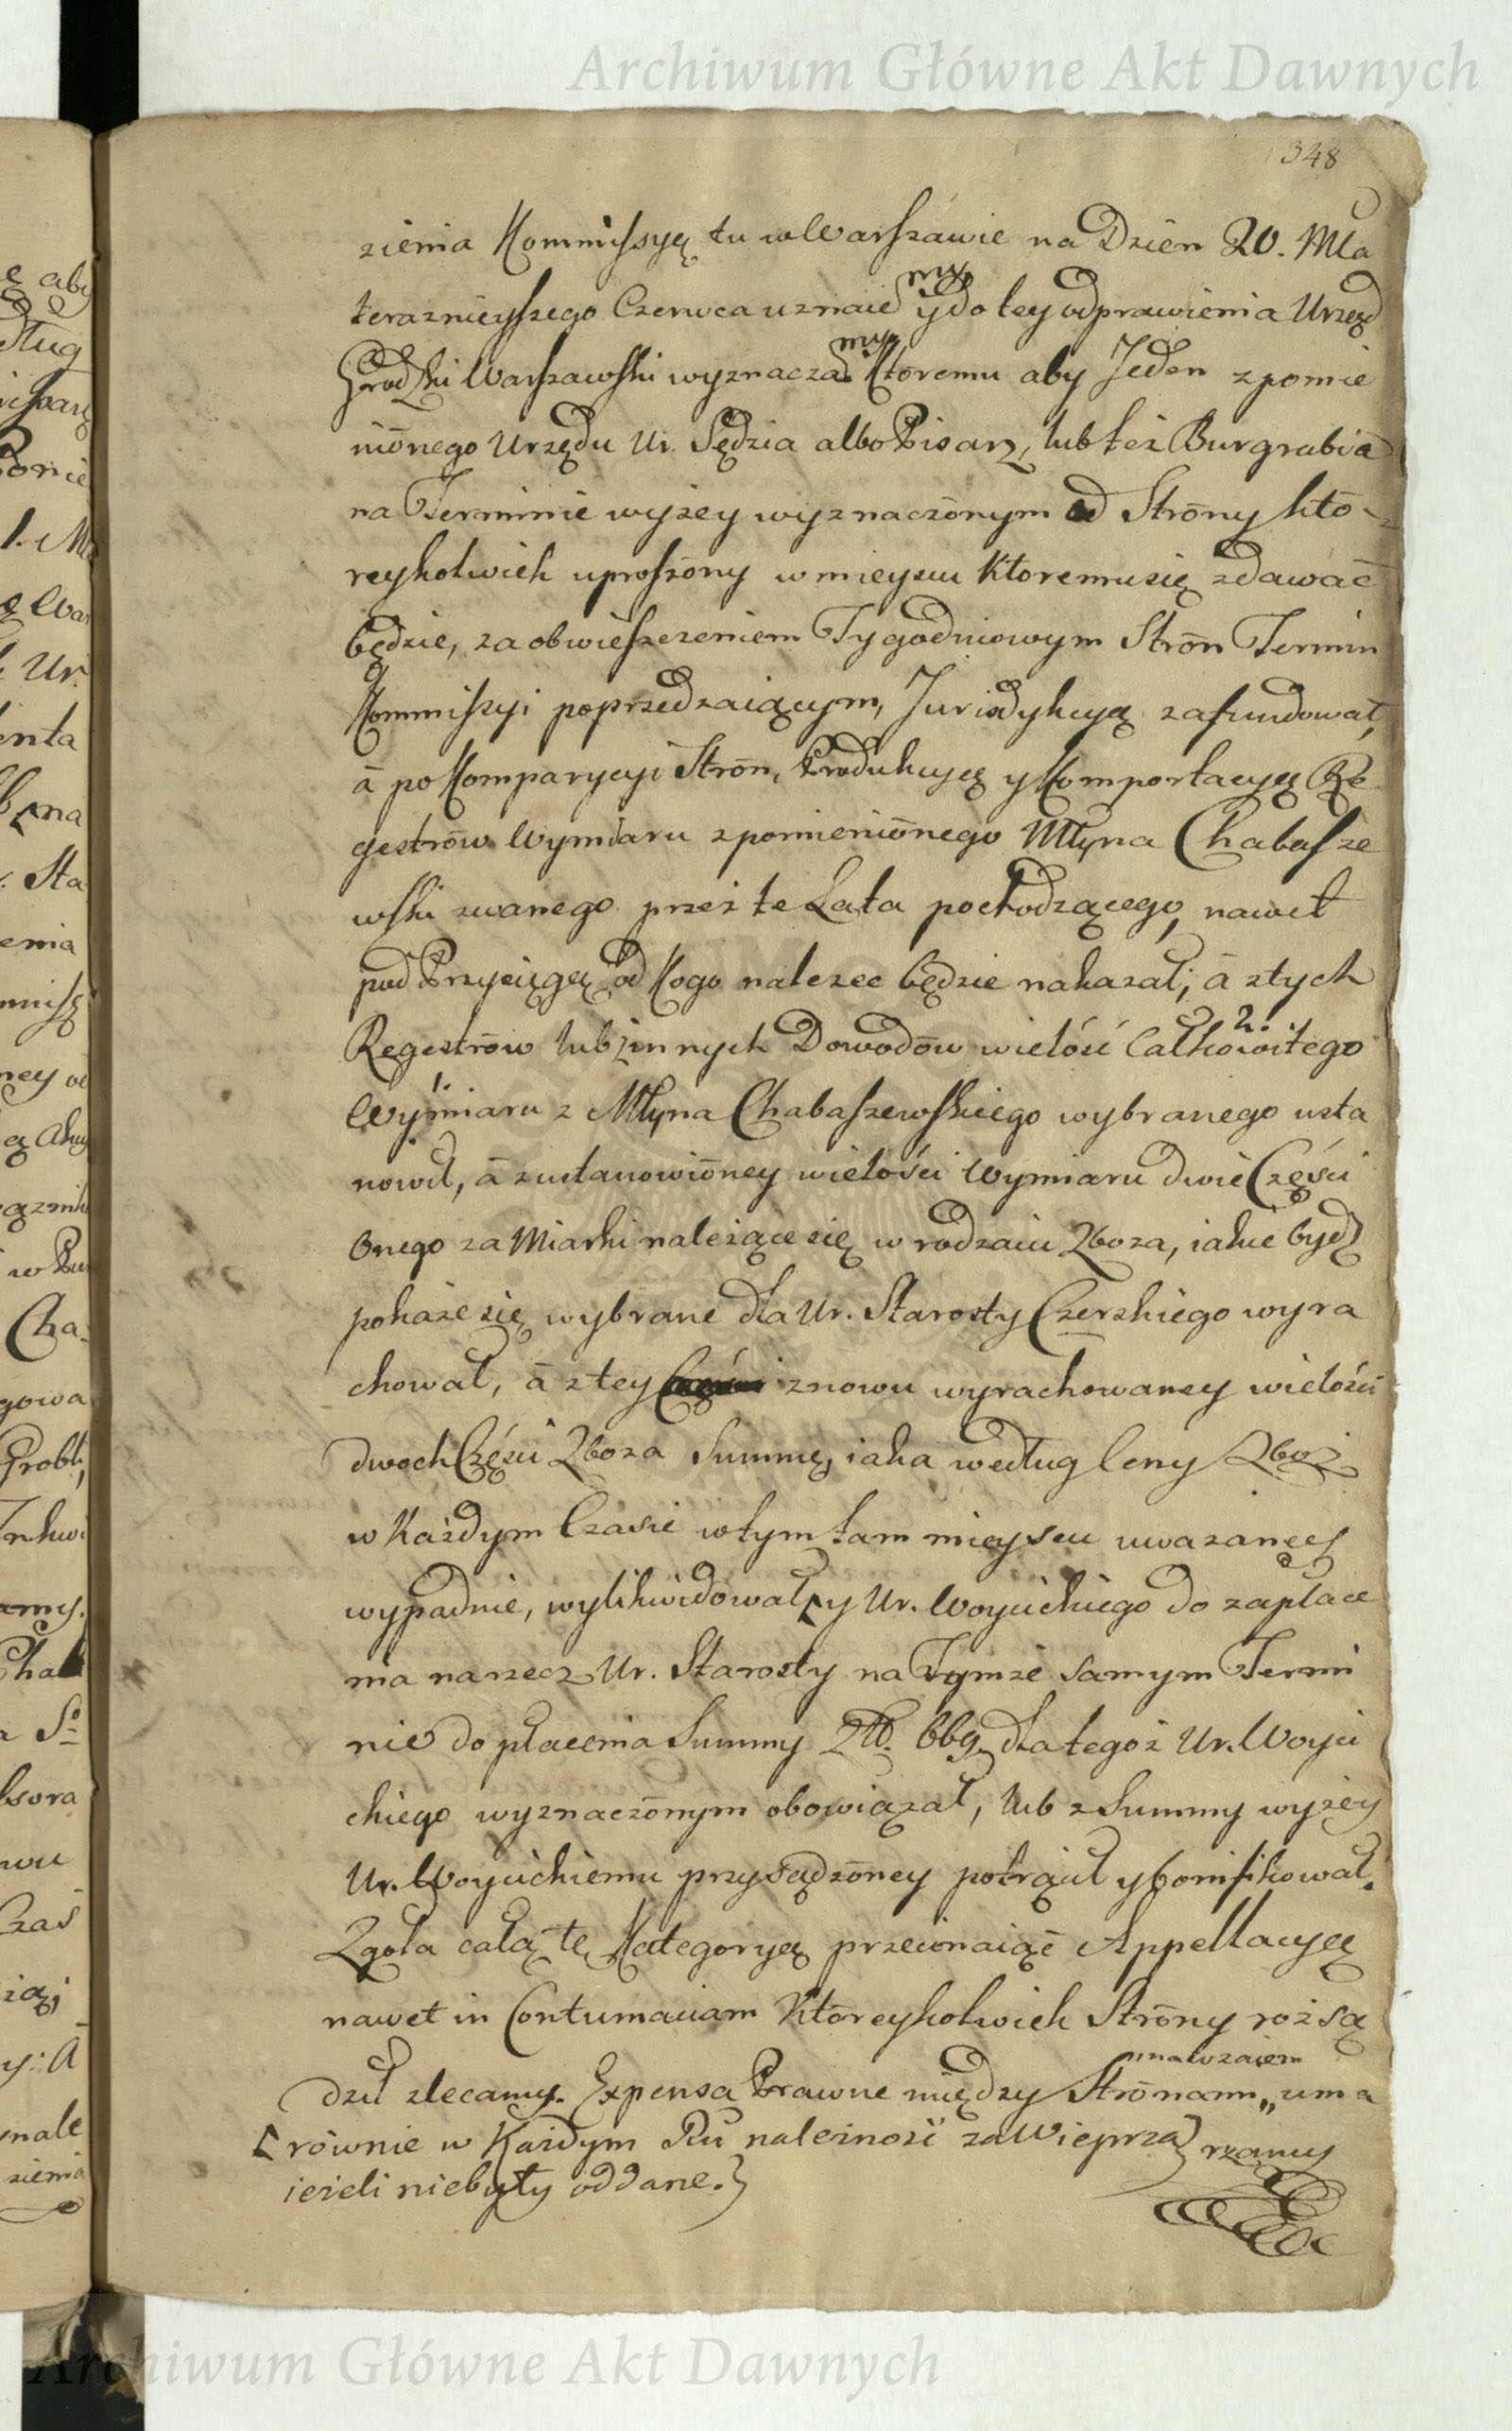 Archiwum Główne Akt Dawnych
348
zienia Kommissyę tu w Warszawie na Dzień 20. Mca
teraznieyszego Czerwca uznaie my y do tey odprawienia Urząd
Grodzki Warszawski wyznacza my Ktoremu aby Jeden z pomie
nionego Urzędu Ur. Sędzia albo Pisarz, lub też Burgrabia
na Terminie wyżey wyznaczōnym od Strōny któ-
reykolwiek uproszōny w mieyscu Ktoremu się zdawać
będzie, za obwieszczeniem Tygodniowym Strōn Termin
Kommissyi poprzedzaiącym, Jurisdykcyą zafundował,
ā po Komparycyi Strōn, Produkcyę y Komportacyę Re
gestrōw Wymiaru z pomieniōnego Młyna Chabasze
wski zwanego przez te Lata pochodzącego, nawet
pod Przysięgą od Kogo nalezec będzie nakazał; ā z tych
Regestrōw lub innych Dowodōw wielość Całkowitego 2.
1. Wymiaru z Młyna Chabaszewskiego wybranego usta
nowił, ā z ustanowiōney wielości Wymiaru dwie Części
Onego za Miarki należące się w rodzaiu Zboza, iakie bydz
pokaże się wybrane dla Ur. Starosty Czerskiego wyra
chował, ā z tey znowu wyrachowaney wielości
dwoch Części Zboza Summę, iaka według Ceny Zboż
w Każdym Czasie w tym tam mieyscu uwazaney
wypadnie, wylikwidował, y Ur. Woyickiego do zapłace
nia na rzecz Ur. Starosty na Tymże samym Termi
nie do płacenia Summy Zł. 669. dla tegoż Ur. Woyci
ckiego wyznaczōnym obowiązał, lub z Summy wyżey
Ur. Woycickiemu przysądzōney potrącił y bonifikował.
Zgoła całą tę Kategoryą przecinaiąć Appellacyą
nawet in Contumaciam Któreykolwiek Strōny rozsą
dził zlecamy. Expensa Prawne między Strōnami uma
wnawzaiem
równie w Każdym Ru należnosć za Wieprza rzamy
ieżeli niebyły oddane.
ę aby
dług
Ponie
Ur.
enta
na
Sta
enia
Cha-
gowa
Grobli,
amy.
Czas
nale
zienia
Archiwum Główne Akt Dawnych